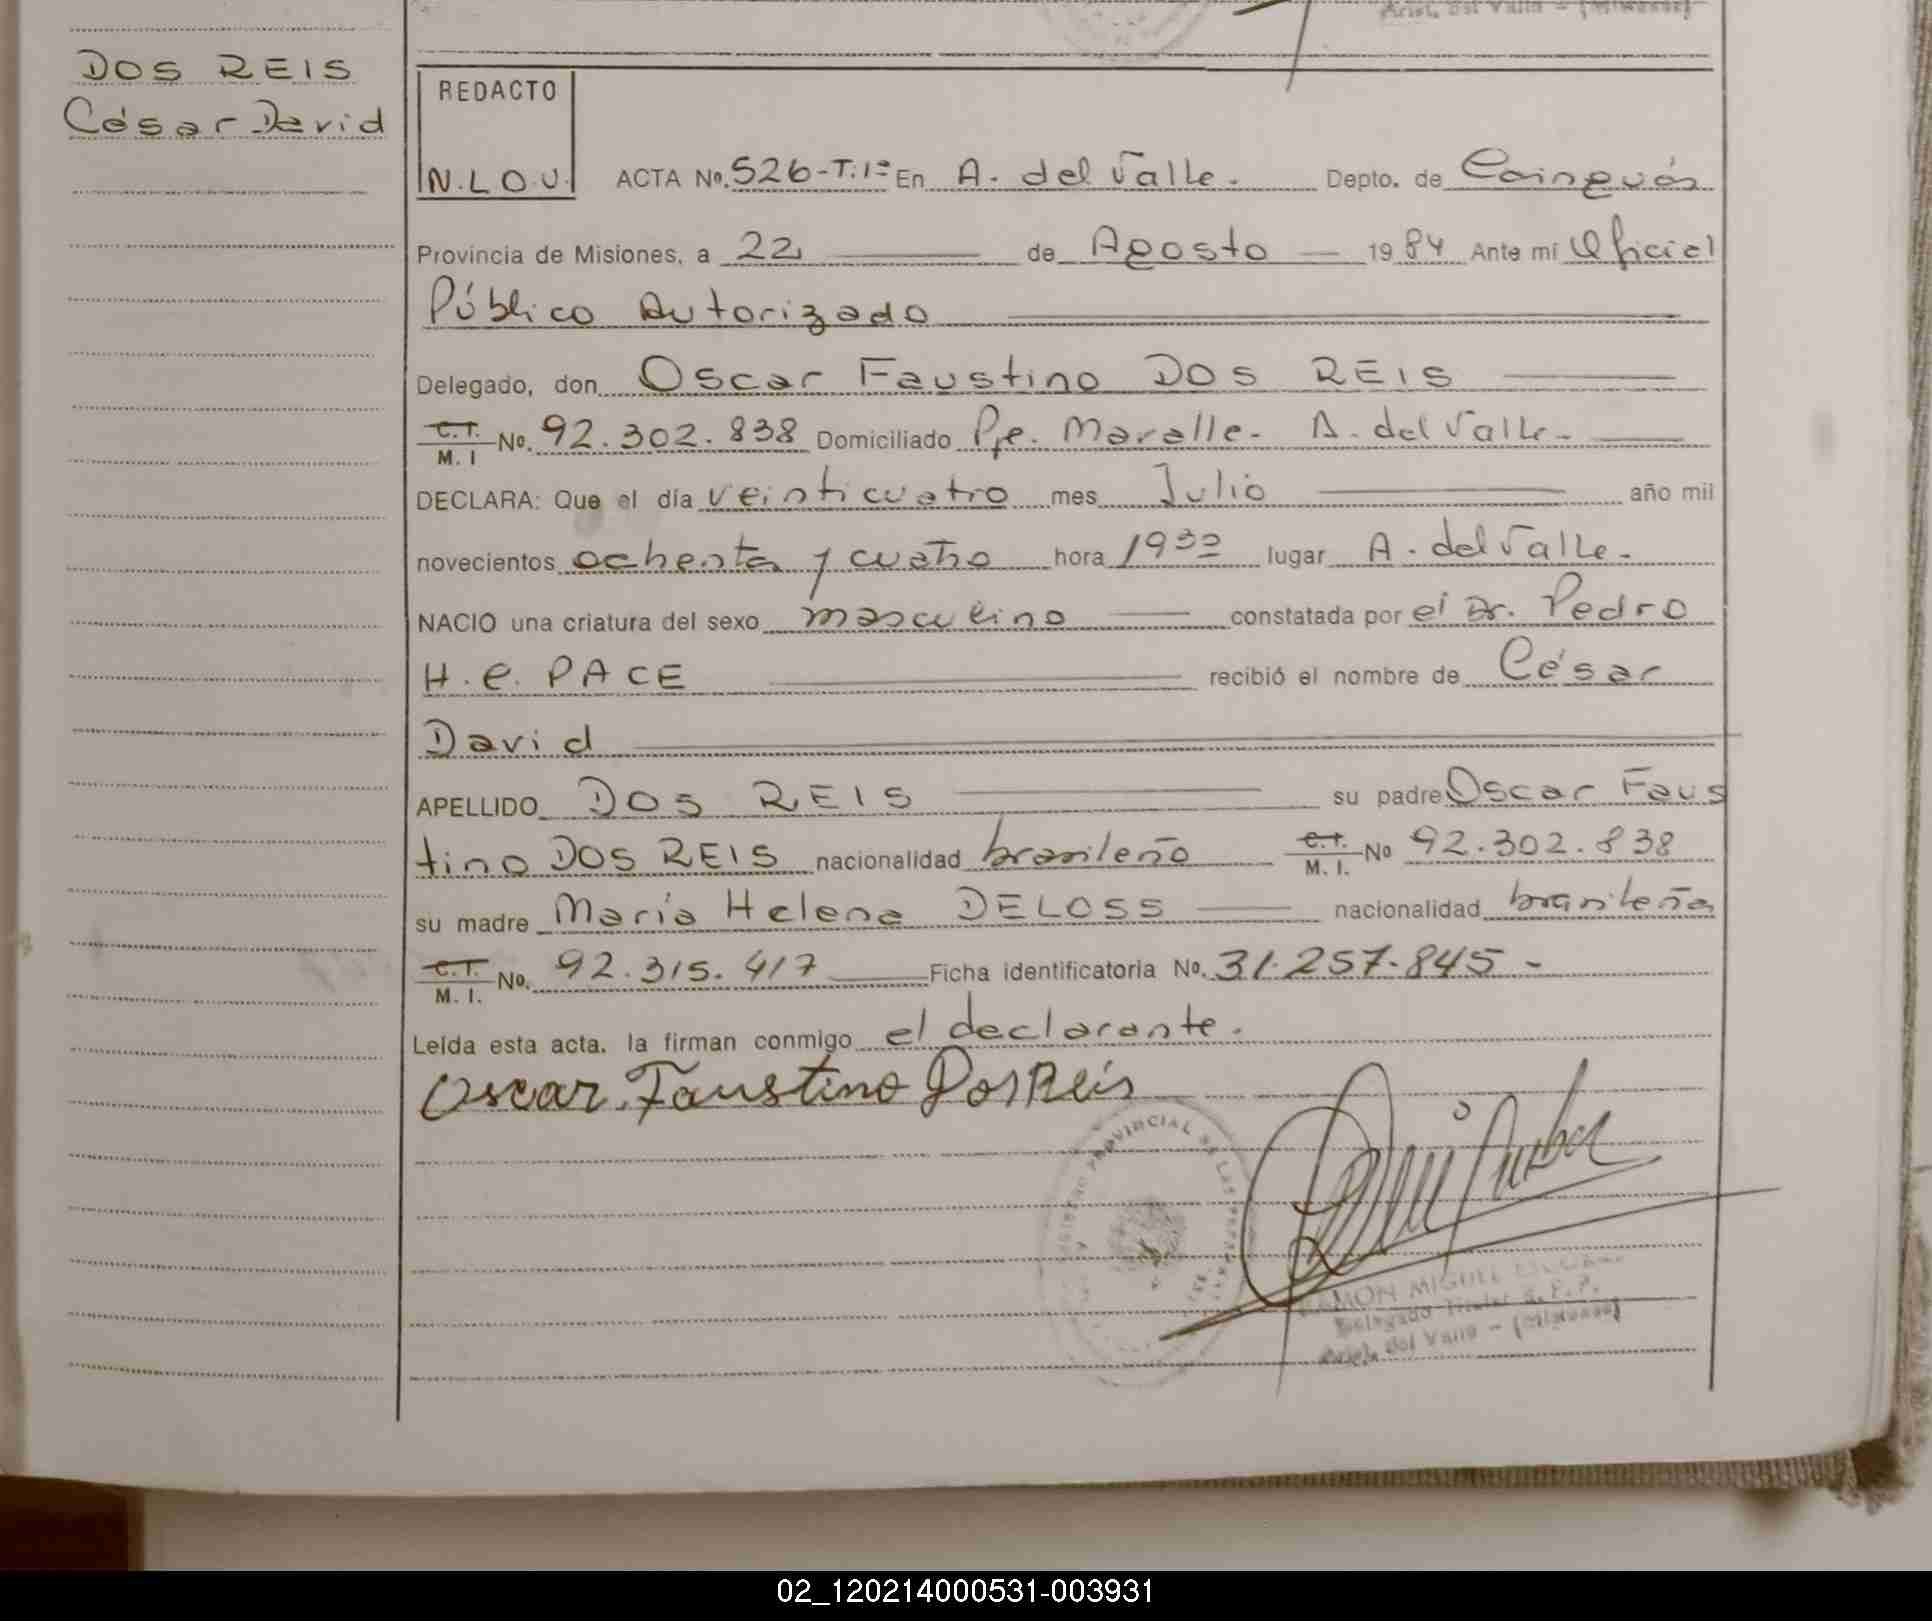 Arist. del Valle - (Misiones)
DOS REIS
César David
REDACTO
N.L.O.U.
ACTA No. 526-T:1º En A. del Valle. Depto. de Cainguás
Provincia de Misiones, a 22 de Agosto 1984 Ante mi Oficial
Público Autorizado
Delegado, don Oscar Faustino DOS REIS
C.I. M.I No. 92.302.838 Domiciliado Pje. Maralle. A. del Valle.
DECLARA: Que el día veinticuatro mes Julio año mil
novecientos ochenta y cuatro hora 1932 lugar A. del Valle.
NACIO una criatura del sexo masculino constatada por el Dr. Pedro
H. C. PACE recibió el nombre de César
David
APELLIDO DOS REIS su padre Oscar Faus
tino DOS REIS nacionalidad brasileño C.I. M.I. No 92.302.838
su madre María Helena DELOSS nacionalidad brasileña
C.I. M.I. No. 92.315.417 Ficha identificatoria No. 31.257.845 -
Leída esta acta, la firman conmigo el declarante.
Oscar Faustino Dos Reis
PROVINCIAL DE LAS PERSONAS
RAMON MIGUEL
Delegado Titular R. P. P.
Arist. del Valle - (Misiones)
02_120214000531-003931